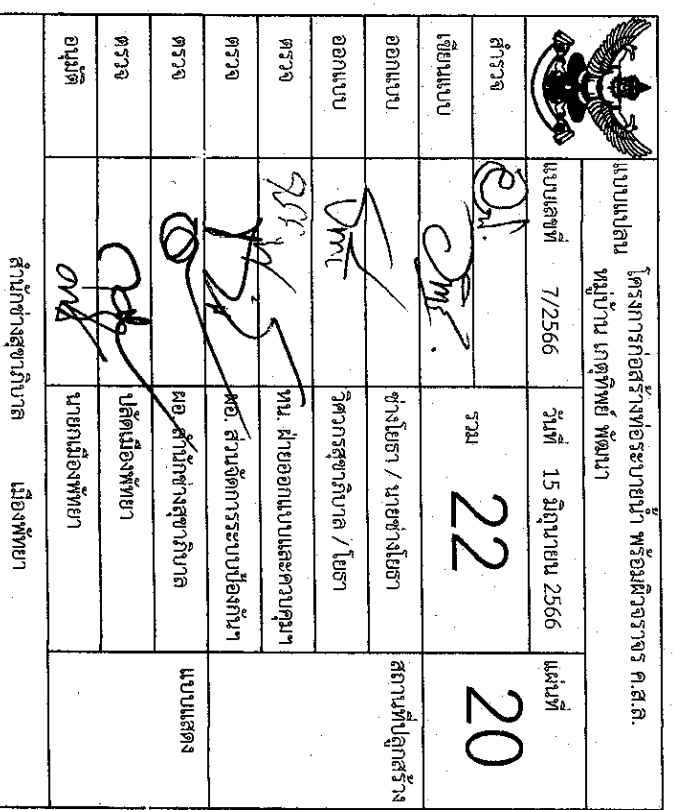 แบบแปลน โครงการก่อสร้างท่อระบายน้ำ พร้อมผิวจราจร ค.ส.ล.
หมู่บ้าน เกตุทิพย์ พัฒนา
แบบเลขที่ 7/2566 วันที่ 15 มิถุนายน 2566 แผ่นที่
สำรวจ รวม 22 20
เขียนแบบ
ออกแบบ ช่างโยธา / นายช่างโยธา สถานที่ปลูกสร้าง
ออกแบบ วิศวกรสุขาภิบาล / โยธา
ตรวจ หน. ฝ่ายออกแบบและควบคุมฯ
ตรวจ ผอ. ส่วนจัดการระบบป้องกันฯ
ตรวจ ผอ. สำนักช่างสุขาภิบาล แบบแสดง
ตรวจ ปลัดเมืองพัทยา
อนุมัติ นายกเมืองพัทยา
สำนักช่างสุขาภิบาล เมืองพัทยา